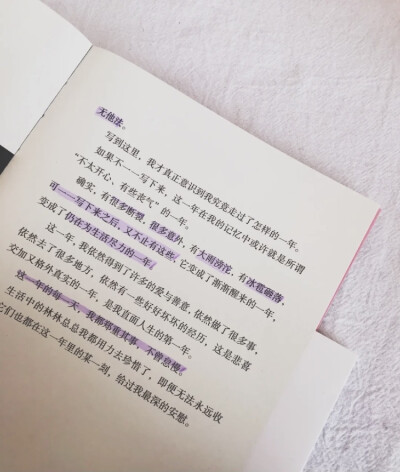 无他法。
写到这里，我才真正意识到我究竟走过了怎样的一年。
如果不一一写下来，这一年在我的记忆中或许就是所谓
“不太开心、有些丧气”的一年。
确实，有很多断裂，很多意外，有大雨滂沱，有冰雹砸落，
可一一写下来之后，又不止有这些，它变成了渐渐醒来的一年，
变成了仍在为生活尽力的一年。
这一年，我依然得到了许多的爱与善意，依然做了很多事，
依然去了很多地方，依然有一些好好坏坏的经历，这是悲喜
交加又格外真实的一年，是我直面人生的第一年。
这一年的每一天，我都郑重其事，不曾怠慢。
生活中的林林总总我都用力去珍惜了，即便无法永远收
它们也都在这一年里的某一刻，给过我最深的安慰。